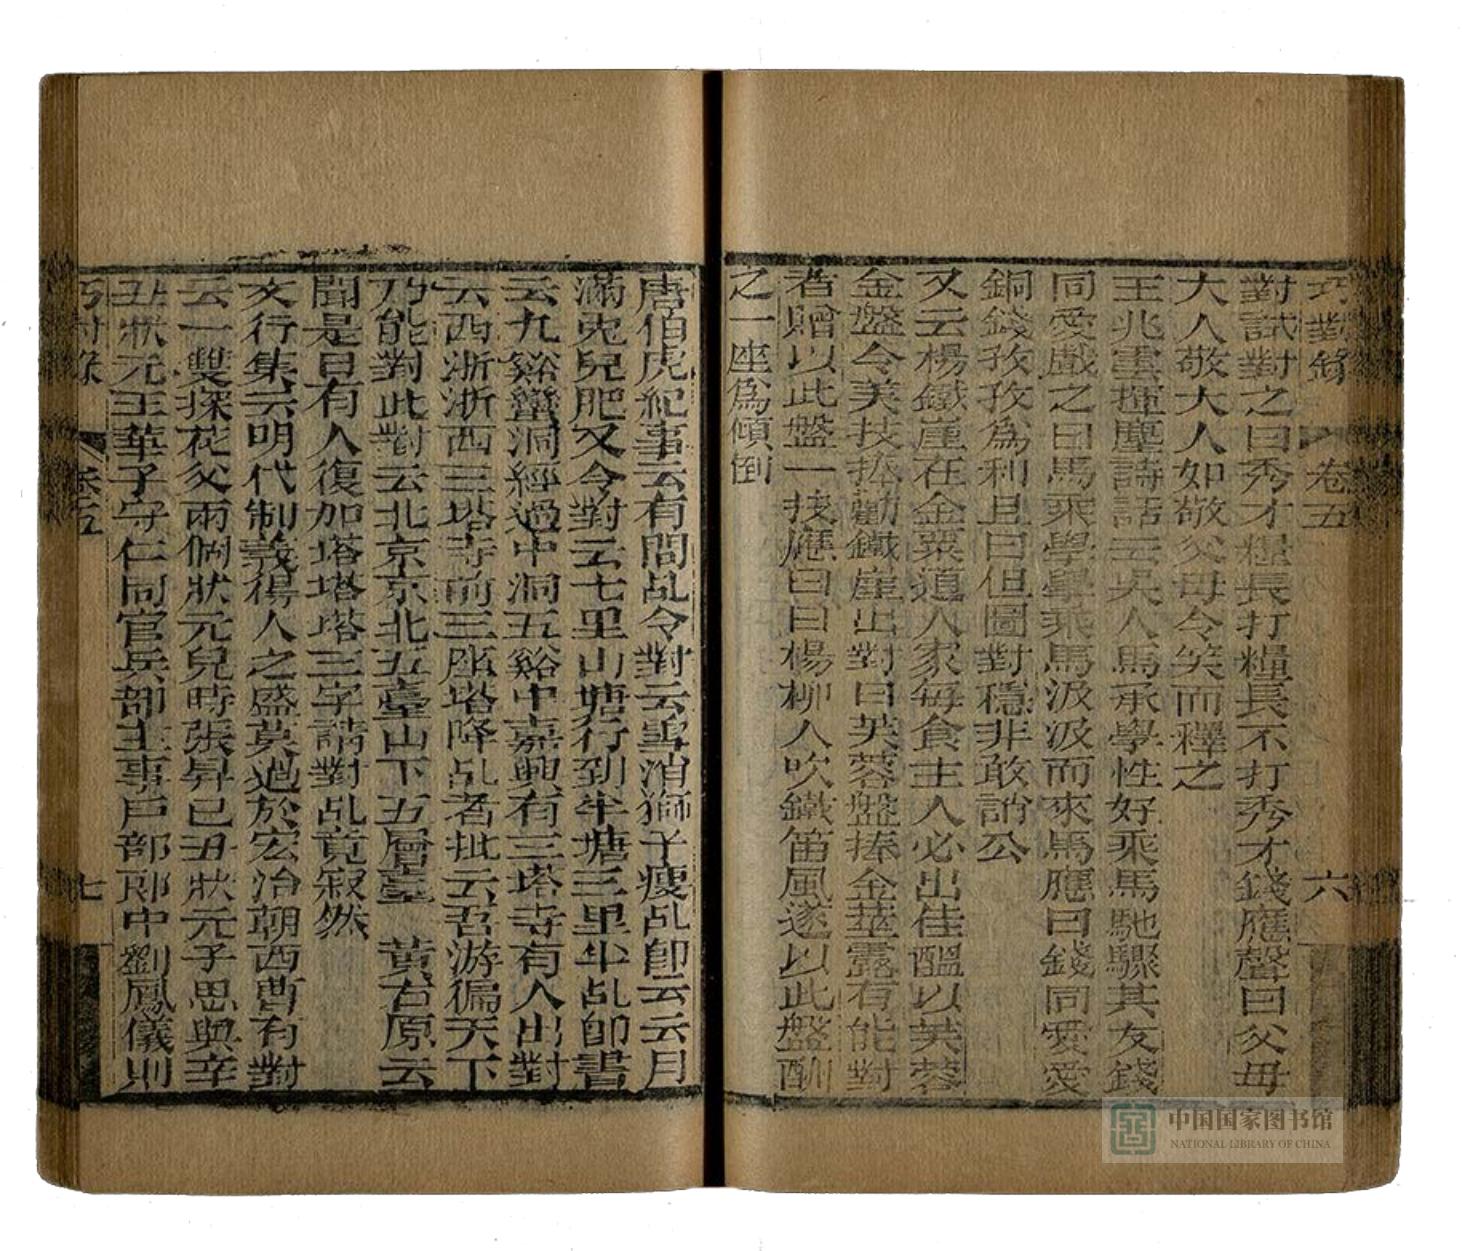 巧對錄 卷五 六
對試對之曰秀才糧長打糧長不打秀才錢應聲曰父母
大人敬大人如敬父母令笑而釋之
王兆雲揮麈詩話云吳人馬承學性好乘馬馳驟其友錢
同愛戲之曰馬乘學學乘馬汲汲而來馬應曰錢同愛愛
銅錢孜孜爲利且曰但圖對穩非敢訕公
又云楊鐵崖在金粟道人家每食主人必出佳醞以芙蓉
金盤令美技捧勸鐵崖出對曰芙蓉盤捧金莖露有能對
者贈以此盤一技應曰曰楊柳人吹鐵笛風遂以此盤酬
之一座爲傾倒
唐伯虎紀事云有問乩令對云雪消獅子瘦乩卽云云月
滿兎兒肥又令對云七里山塘行到半塘三里半乩卽書
云九谿蠻洞經過中洞五谿中嘉興有三塔寺有人出對
云西浙浙西三塔寺前三座塔降乩者批云吾游徧天下
乃能對此對云北京京北五臺山下五層臺 黃右原云
聞是日有人復加塔塔塔三字請對乩竟寂然
文行集云明代制義得人之盛莫過於宏治朝西曹有對
云一雙探花父兩個狀元兒時張昇已丑狀元子思與辛
丑狀元王華子守仁同官兵部主事戶部郎中劉鳳儀則
巧對錄 卷五 七
中国国家图书馆
NATIONAL LIBRARY OF CHINA